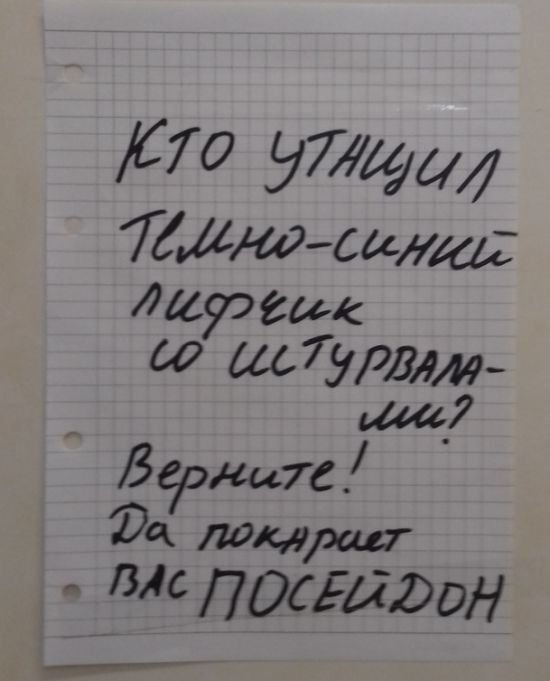 КТО УТАЩИЛ
ТЕМНО-СИНИЙ
ЛИФЧИК
СО ШТУРВАЛА-
МИ?
Верните!
Да покарает
ВАС ПОСЕЙДОН